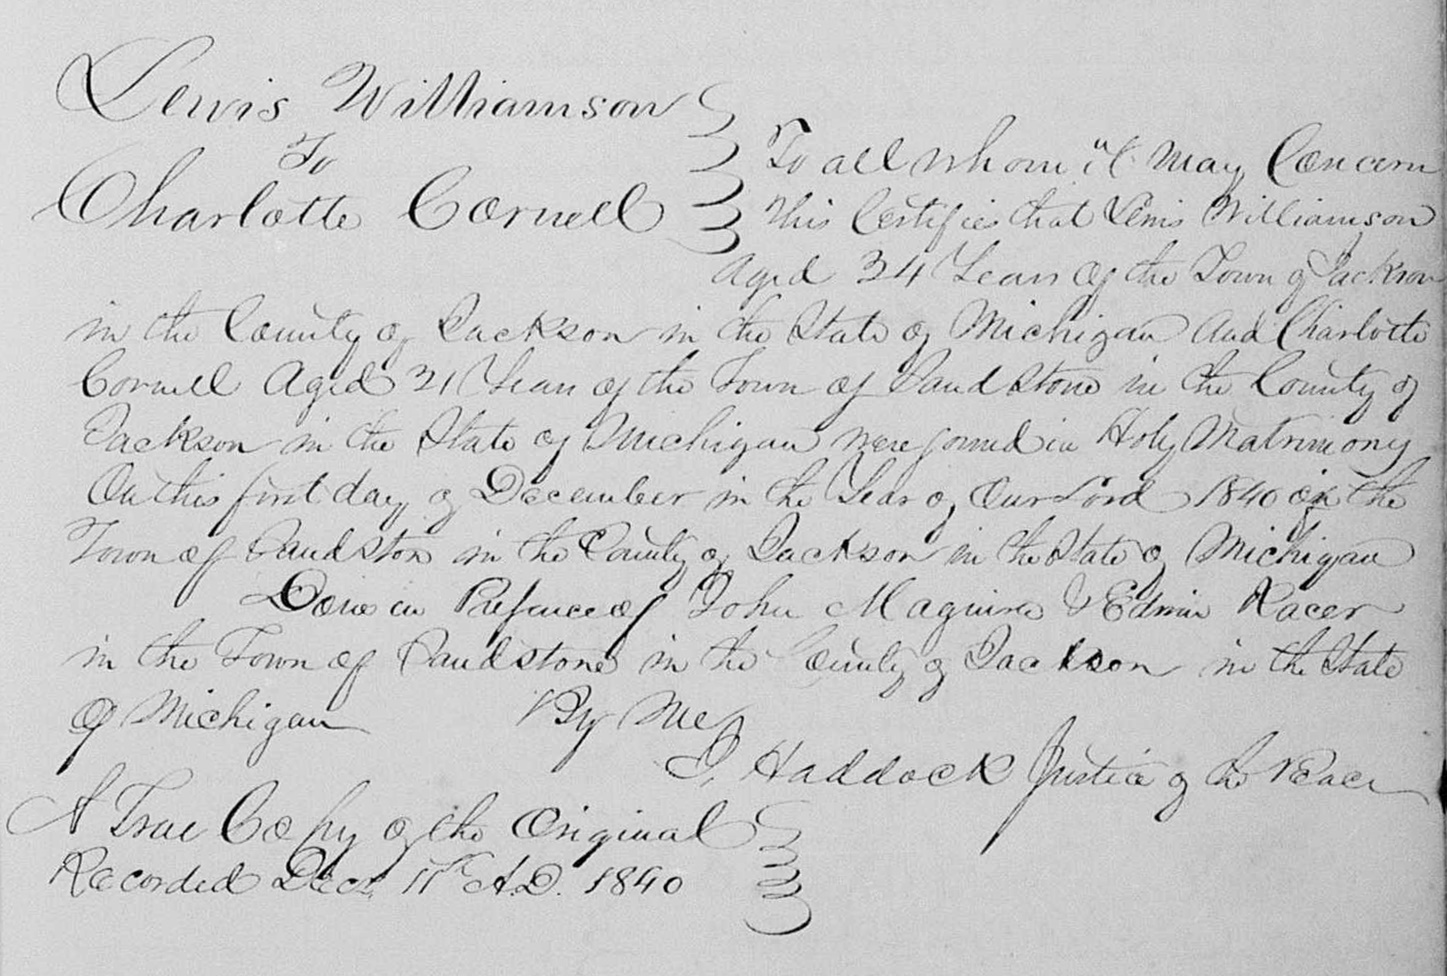 Lewis Williamson
To
Charlotte Cornell
To all whom it May Concern
This Certifies that Lewis Williamson
Aged 34 Years Of the Town of Jackson
in the County of Jackson in the State of Michigan And Charlotte
Cornell Aged 21 Years of the Town of Sand Stone in the County of
Jackson in the State of Michigan were joined in Holy Matrimony
On this first day of December in the Year of Our Lord 1840 in the
Town of Sandston in the County of Jackson in the State of Michigan
Done in Presence of John Maguire & Edwin Racer
in the Town of Sandstone in the County of Jackson in the State
Of Michigan By Me
J. Haddock Justice of the Peace
A True Copy of the Original
Recorded Dec. 11th A.D. 1840